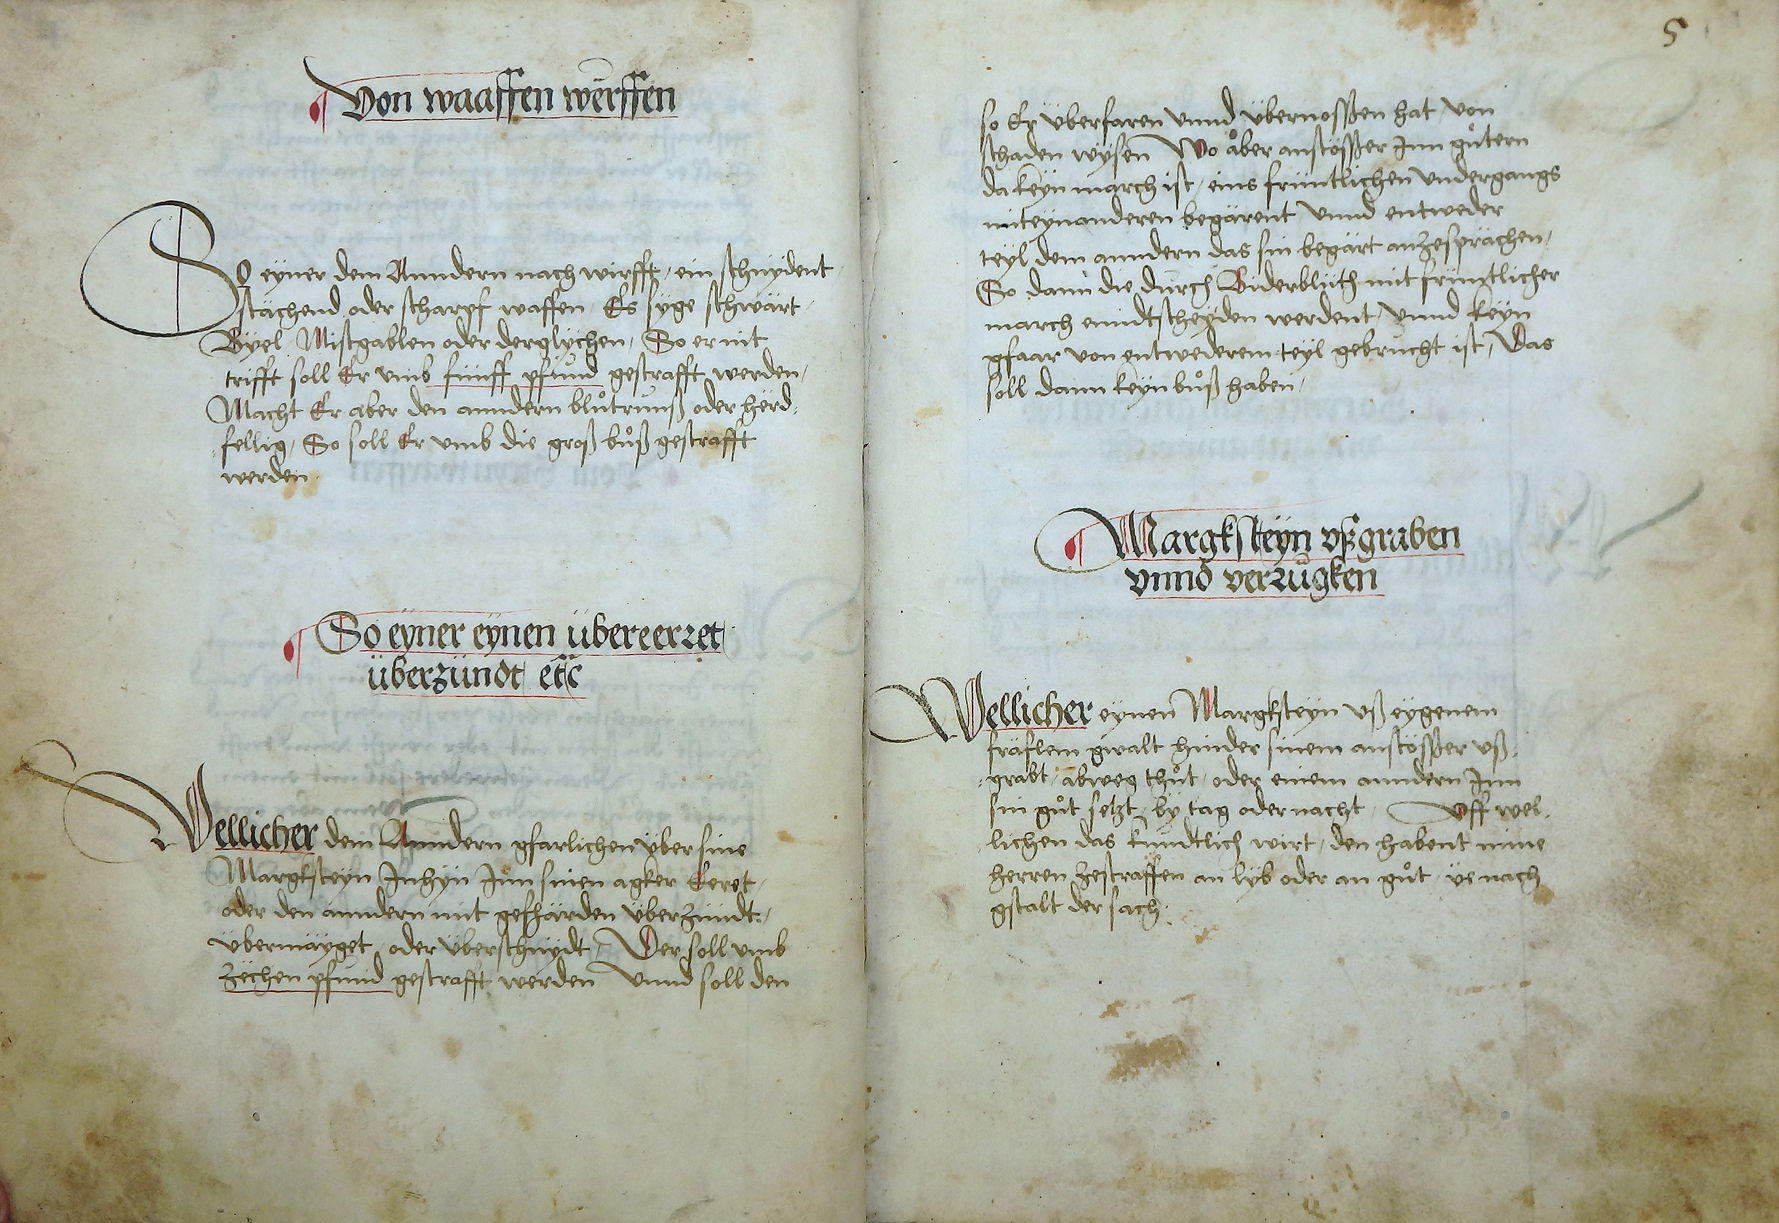 Von waaffen werffen
So eyner dem Anndern nach wirfft, ein schnydent
stächend oder scharpf waffen, Es syge schwärt,
Byel Mistgablen oder derglychen, So er nit
trifft soll Er vmb fünff pfund gestrafft werden,
Macht Er aber den anndern blůtrunß oder herd-
fellig, So soll Er vmb die groß bůß gestrafft
werden.
So eyner eynen übereerret
überzündt etc
Wellicher dem Anndern gfarlichen über sine
Margksteyn Inhyn Inn sinen agker Eeret,
oder den anndern mit gefärden überzündt,
übermäyget oder überschnydt, Der soll vmb
zechen pfund gestrafft werden Vnnd soll den
5
so Er überfaren vnnd übernossen hat, von
schaden wysen Wo aber anstösser Inn gůtern
da keyn march ist, eins früntlichen vndergangs
miteynanderen begärent vnnd entweder
teyl dem anndern das sin begärt anzesprächen,
So dann die durch Biderblüth mit früntlicher
march enndtscheyden werdent, vnnd keyn
gfaar von entwederem teyl gebrucht ist, Das
soll dann keyn bůß haben,
Margksteyn vßgraben
vnnd verrugken
Wellicher eynen Margksteyn vß eygenem
fräflem gwalt hinder sinem anstösser vß-
grabt, abweg thůt, oder einem anndern Inn
sin gůt setzt, by tag oder nacht, Vff wel-
lichen das kundtlich wirt, den habent mine
herren zestraffen an lyb oder an gůt, ye nach
gstalt der sach.